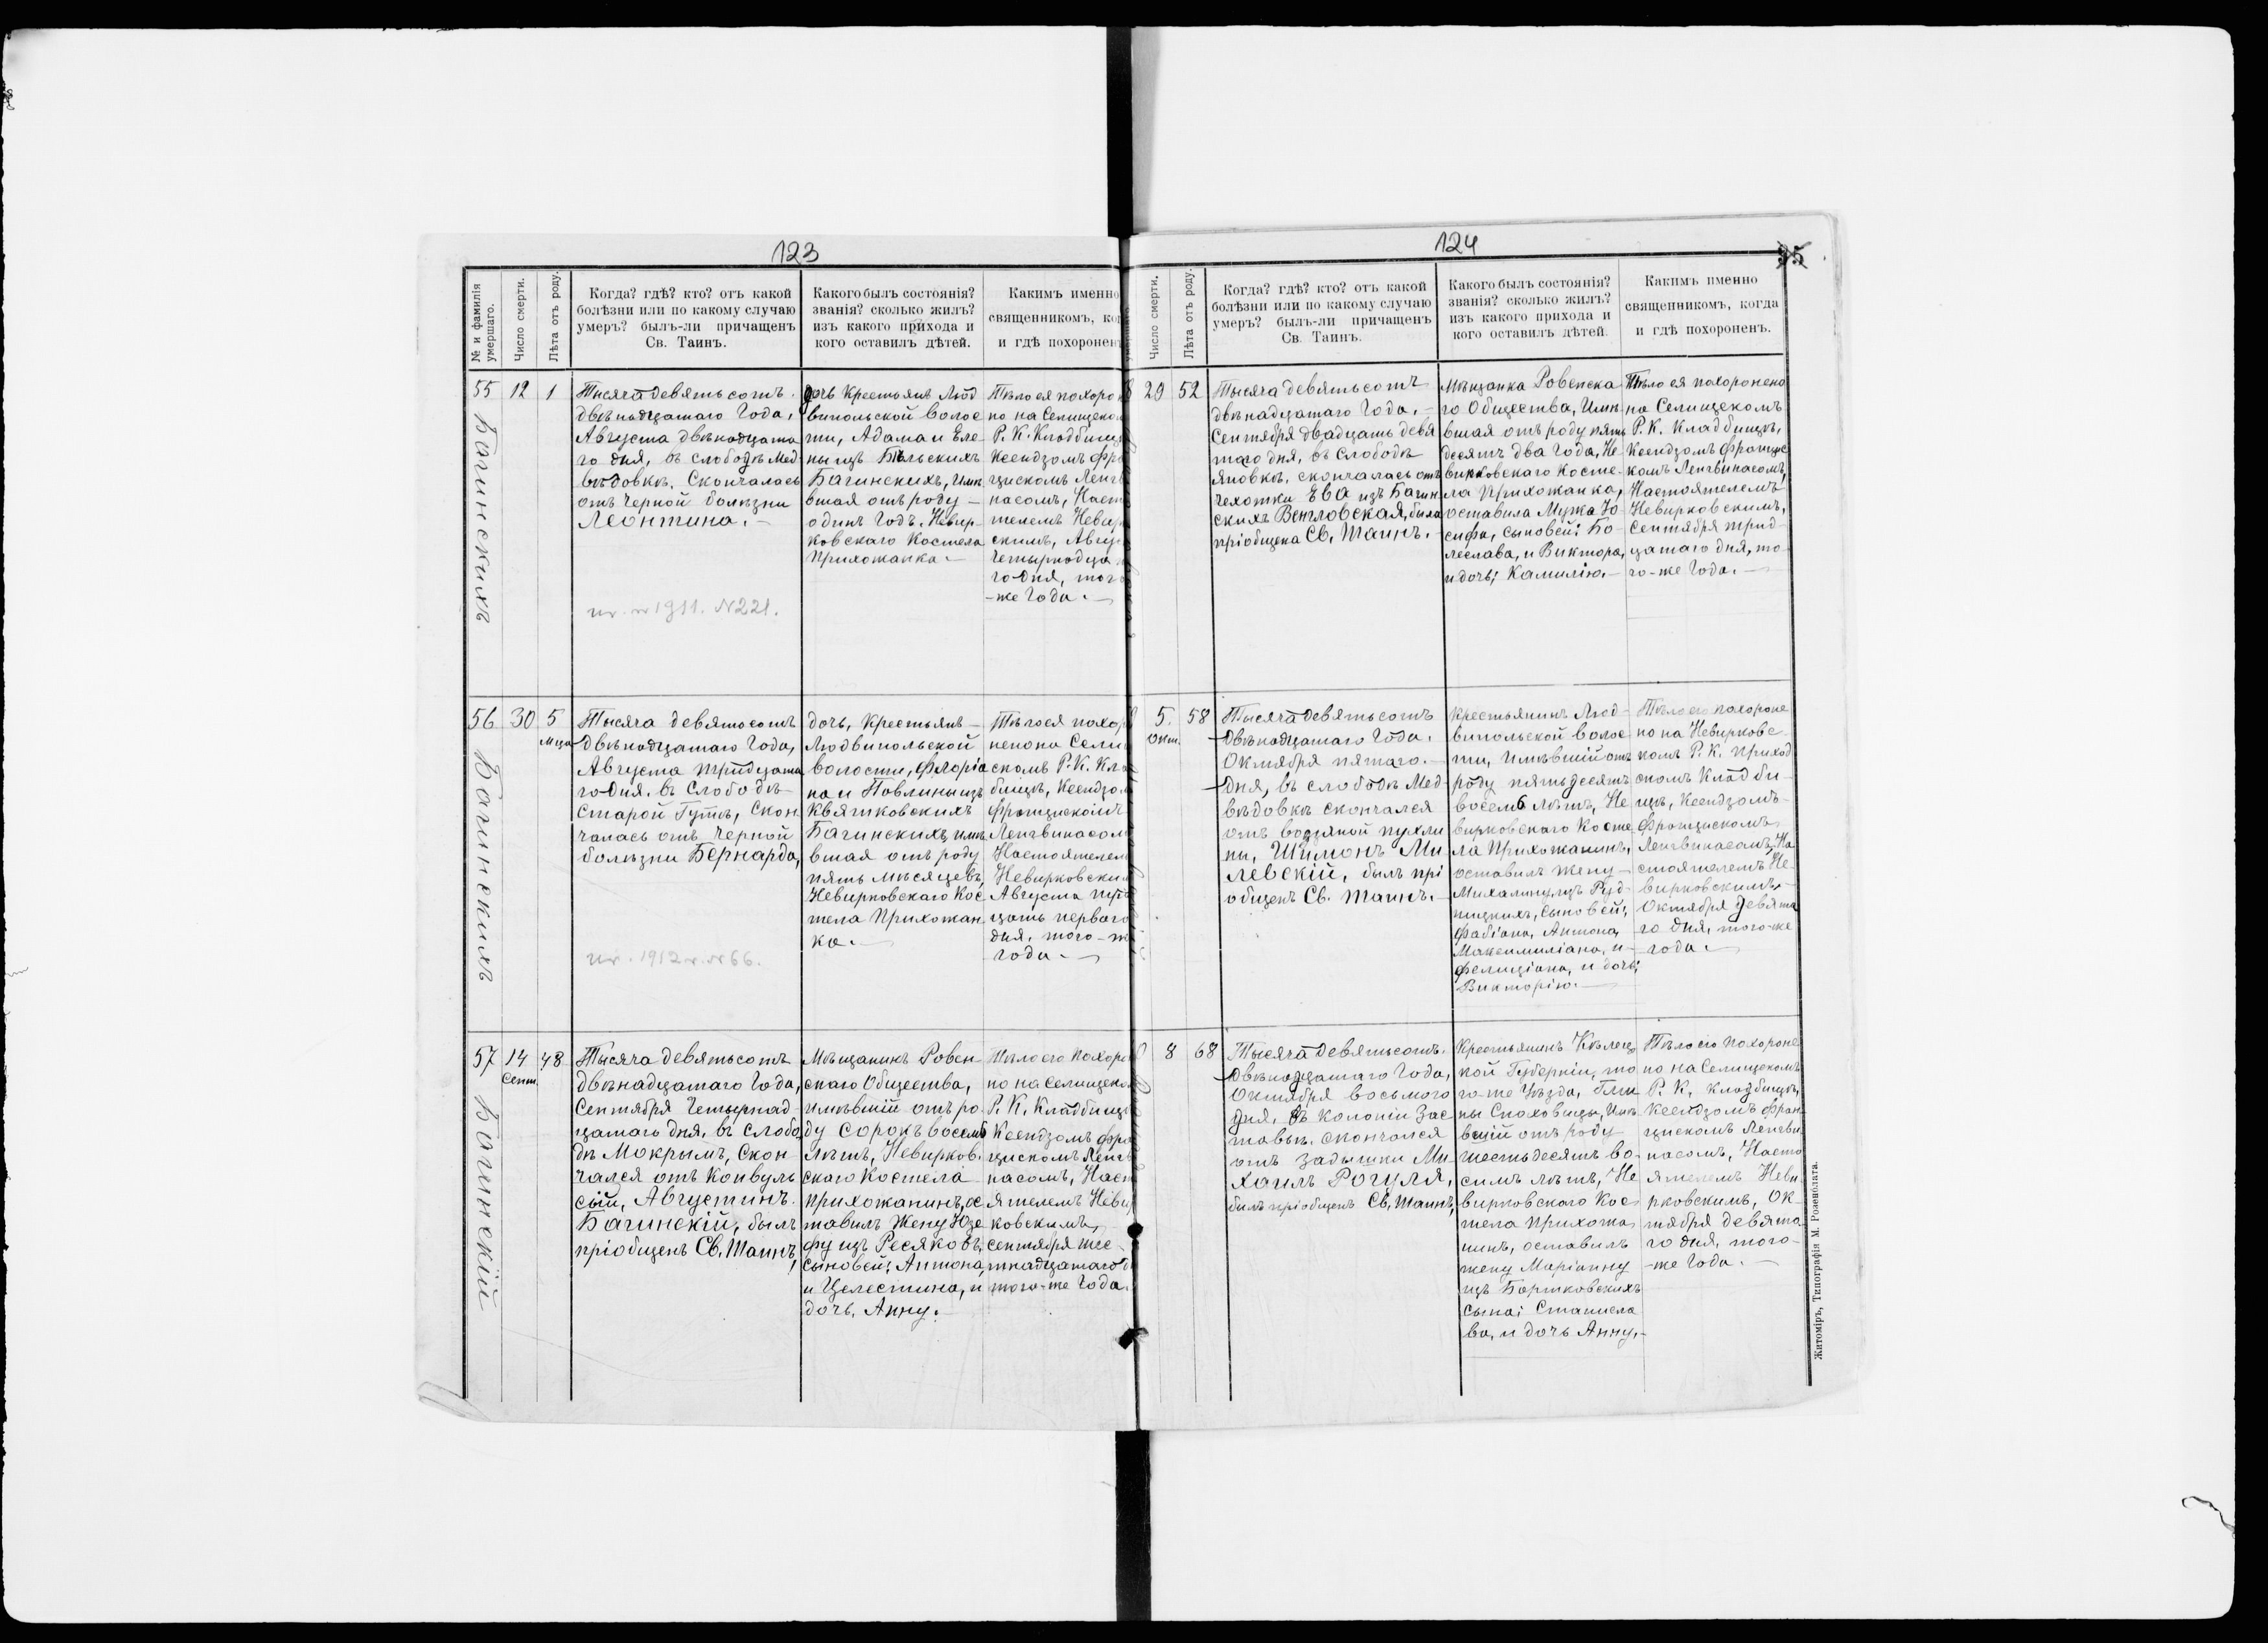 123
№ и фамилія умершаго.
Число смерти.
Лѣта отъ роду.
Когда? гдѣ? кто? отъ какой
болѣзни или по какому случаю
умеръ? былъ-ли причащенъ
Св. Таинъ.
Какого былъ состоянія?
званія? сколько жилъ?
изъ какого прихода и
кого оставилъ дѣтей.
Какимъ именно
священникомъ, ко
и гдѣ похоронен
55
12
1
Багинскихъ
Тысяча девятьсотъ
двѣнадцатаго Года,
Августа двѣнадцата
го дня, въ слободѣ Мед
вѣдовкѣ, Скончалась
отъ Черной болѣзни
Леонтина.—
1911. N221.
дочь Крестьянъ Люд
випольской волос
ти, Адама и Еле
ны изъ Бѣльскихъ
Багинскихъ, Имѣ
вшая отъ роду —
одинъ Годъ. Невир-
ковскаго Костела
Прихожанка.—
Тѣло ея похоро
но на Селищско
Р. К. Кладбищ
Ксендзомъ Фра
цискомъ Ленгв
насомъ, Наст
телемъ Невир
скимъ, Авгу
Четырнадца
го дня, того
-же Года.—
56
30
5
мца
Багинскихъ
Тысяча девятьсотъ
двѣнадцатаго Года,
Августа тридцата
го дня, въ Слободѣ
Старой Гутѣ, Скон
чалась отъ Черной
болѣзни Бернарда,
1912 N66.
дочь, Крестьянъ —
Людвипольской
волости, Флорiа
на и Павлины изъ
Квятковскихъ
Багинскихъ, имѣ
вшая отъ роду
пять мѣсяцевъ,
Невирковскаго Кос
тела Прихожан
ка.—
Тѣло ея похор
нено на Сели
скомъ Р. К. Кла
бищѣ, Ксендзо
Францискомъ
Ленгвинасом
Настоятелем
Невирковски
Августа три
цать перваго
дня, того-ж
года.—
57
14
Сент.
48
Багинскій
Тысяча девятьсотъ
двѣнадцатаго Года,
Сентября Четырнад
цатаго дня, въ слобо
дѣ Мокрымъ, Скон
чался отъ Конвуль
сій, Августинъ
Багинскій, былъ
пріобщенъ Св. Таинъ,
Мѣщанинъ Ровен
скаго Общества,
имѣвшій отъ ро
ду сорокъ восемь
лѣтъ, Невирков
скаго Костела
прихожанинъ, ос
тавилъ Жену Юзе
фу изъ Ресяковъ,
сыновей: Антона,
и Целестина, и
дочь, Анну.—
Тѣло его Похоро
но на Селищско
Р. К. Кладбищѣ
Ксендзомъ Фра
цискомъ Ленгв
насомъ, Наст
ятелемъ Невир
ковскимъ,
Сентября шес
тнадцатаго д
того-же Года.
124
35
Число смерти.
Лѣта отъ роду.
Когда? гдѣ? кто? отъ какой
болѣзни или по какому случаю
умеръ? былъ-ли причащенъ
Св. Таинъ.
Какого былъ состоянія?
званія? сколько жилъ?
изъ какого прихода и
кого оставилъ дѣтей.
Какимъ именно
священникомъ, когда
и гдѣ похороненъ.
29
52
Тысяча девятьсотъ
двѣнадцатаго Года,—
Сентября двадцать девя
таго дня, въ Слободѣ
Яновкѣ, скончалась отъ
Чехотки Ева изъ Багин
скихъ Венгловская, была
пріобщена Св. Таинъ.
Мѣщанка Ровенска
го Общества, Имѣ
вшая отъ роду пять
десятъ два Года, Не
вирковскаго Косте
ла Прихожанка,
оставила Мужа Іо
сифа, Сыновей: Бо
леслава, и Виктора,
и дочь; Камилію.—
Тѣло ея похоронено
на Селищскомъ
Р. К. Кладбищѣ,
Ксендзомъ Францис
комъ Ленгвинасомъ,
Настоятелемъ
Невирковскимъ,
Сентября трид
цатаго дня, то
го-же Года.—
5.
Окт.
58
Тысяча девятьсотъ
двѣнадцатаго Года.
Октября пятаго.—
дня, въ слободѣ Мед
вѣдовкѣ скончался
отъ водяной пухли
ны, Шимонъ Ми
левскій, былъ прі
общенъ Св. Таинъ.—
Крестьянинъ Люд
випольской волос
ти, Имѣвшій отъ
роду пятьдесятъ
восемь лѣтъ, Не
вирковскаго Косте
ла Прихожанинъ,
оставилъ жену —
Михалину изъ Руд
ницкихъ, Сыновей;
Фабіана, Антона,
Максимиліана, и
Фелиціана, и дочь;
Викторію.—
Тѣло его похороне
но на Невирковс
комъ Р. К. Приход
скомъ Кладби
щѣ, Ксендзомъ
Францискомъ
Ленгвинасомъ, На
стоятелемъ Не
вирковскимъ,
Октября девята
го дня, того-же
года.—
8
68
Тысяча девятьсотъ.
двѣнадцатаго Года,
Октября восьмого
дня, въ Колоніи Зас
тавьи, скончался
отъ Задышки Ми
хаилъ Рогуля,
былъ пріобщенъ Св. Таинъ,
Крестьянинъ Кѣлец
кой Губерніи, то
го-же Уѣзда, Гми
ны Снохови­цы, Имѣ
вшій отъ роду
шестьдесятъ во
симъ лѣтъ, Не
вирковскаго Кос
тела Прихожа
нинъ, оставилъ
жену Маріанну
изъ Бортковскихъ
Сына; Станисла
ва, и дочь Анну.—
Тѣло его похороне
но на Селищскомъ
Р. К. Кладбищѣ,
Ксендзомъ Фран
цискомъ Ленгви
насомъ, Насто
ятелемъ Неви
рковскимъ, Ок
тября девята
го дня, того-
-же Года.—
Житоміръ, Типографія М. Розенблата.